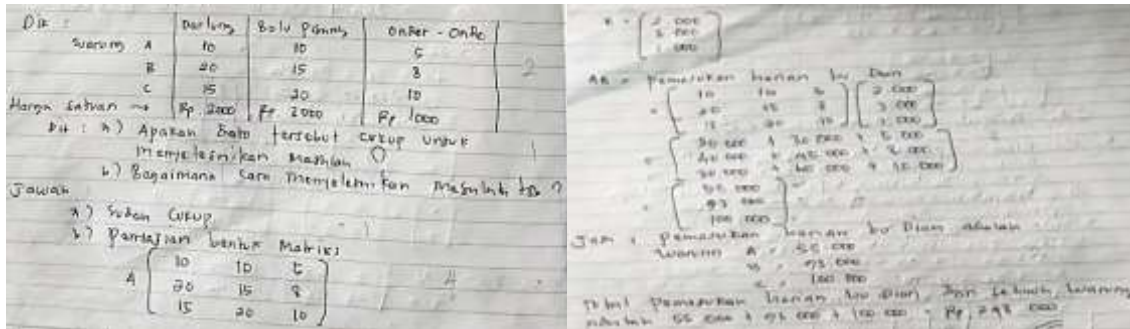 Dik :
Dadung Bolu Pisang Onder - Onde
Warung A 10 10 5
B 20 15 8
C 15 20 10
Harga Satuan → Rp. 2000 Rp 2000 Rp 1000
Dit : a) Apakah Data tersebut cukup untuk
menyelesaikan masalah
b) Bagaimana Cara menyelesaikan masalah tsb ?
Jawab
a) Sudah Cukup
b) Penyajian bentuk Matriks
A [ 10 10 5
20 15 8
15 20 10 ]
2
1
1
4
B = [ 2.000
3.000
1.000 ]
AB = Pemasukan harian bu Dian
= [ 10 10 5 ] [ 2.000
20 15 8 3.000
15 20 10 1.000 ]
= [ 20 000 + 30 000 + 5 000
40 000 + 45 000 + 8 000
30 000 + 60 000 + 10 000 ]
= [ 55 000
93 000
100 000 ]
Jadi, Pemasukan harian bu Dian adalah
Warung A = 55 000
B = 93 000
C = 100 000
Total Pemasukan harian bu Dian, dari seluruh warung
adalah 55 000 + 93 000 + 100 000 = Rp 248 000